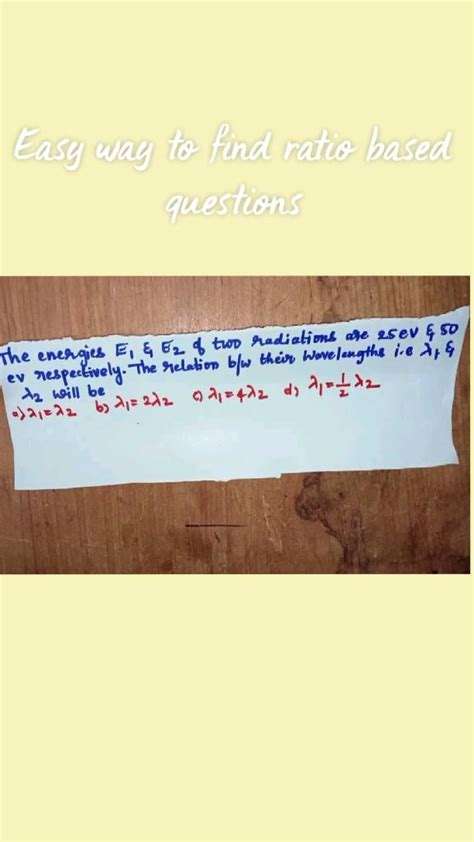 Easy way to find ratio based
questions
The energies E₁ & E₂ of two radiations are 25ev & 50
ev respectively. The relation b/w their wavelengths i.e λ₁ &
λ₂ will be
a) λ₁=λ₂ b) λ₁=2λ₂ c) λ₁=4λ₂ d) λ₁=1/2 λ₂